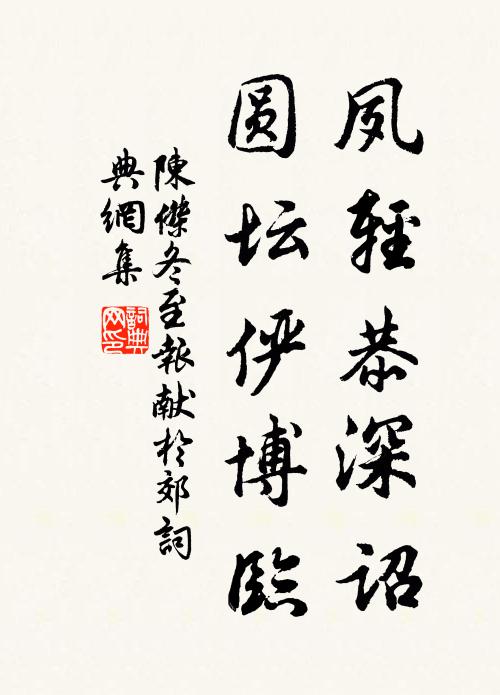 夙輕恭深詔
圆坛俨博臨
陳傑冬至報献於郊詞
典網集
詞典
网印